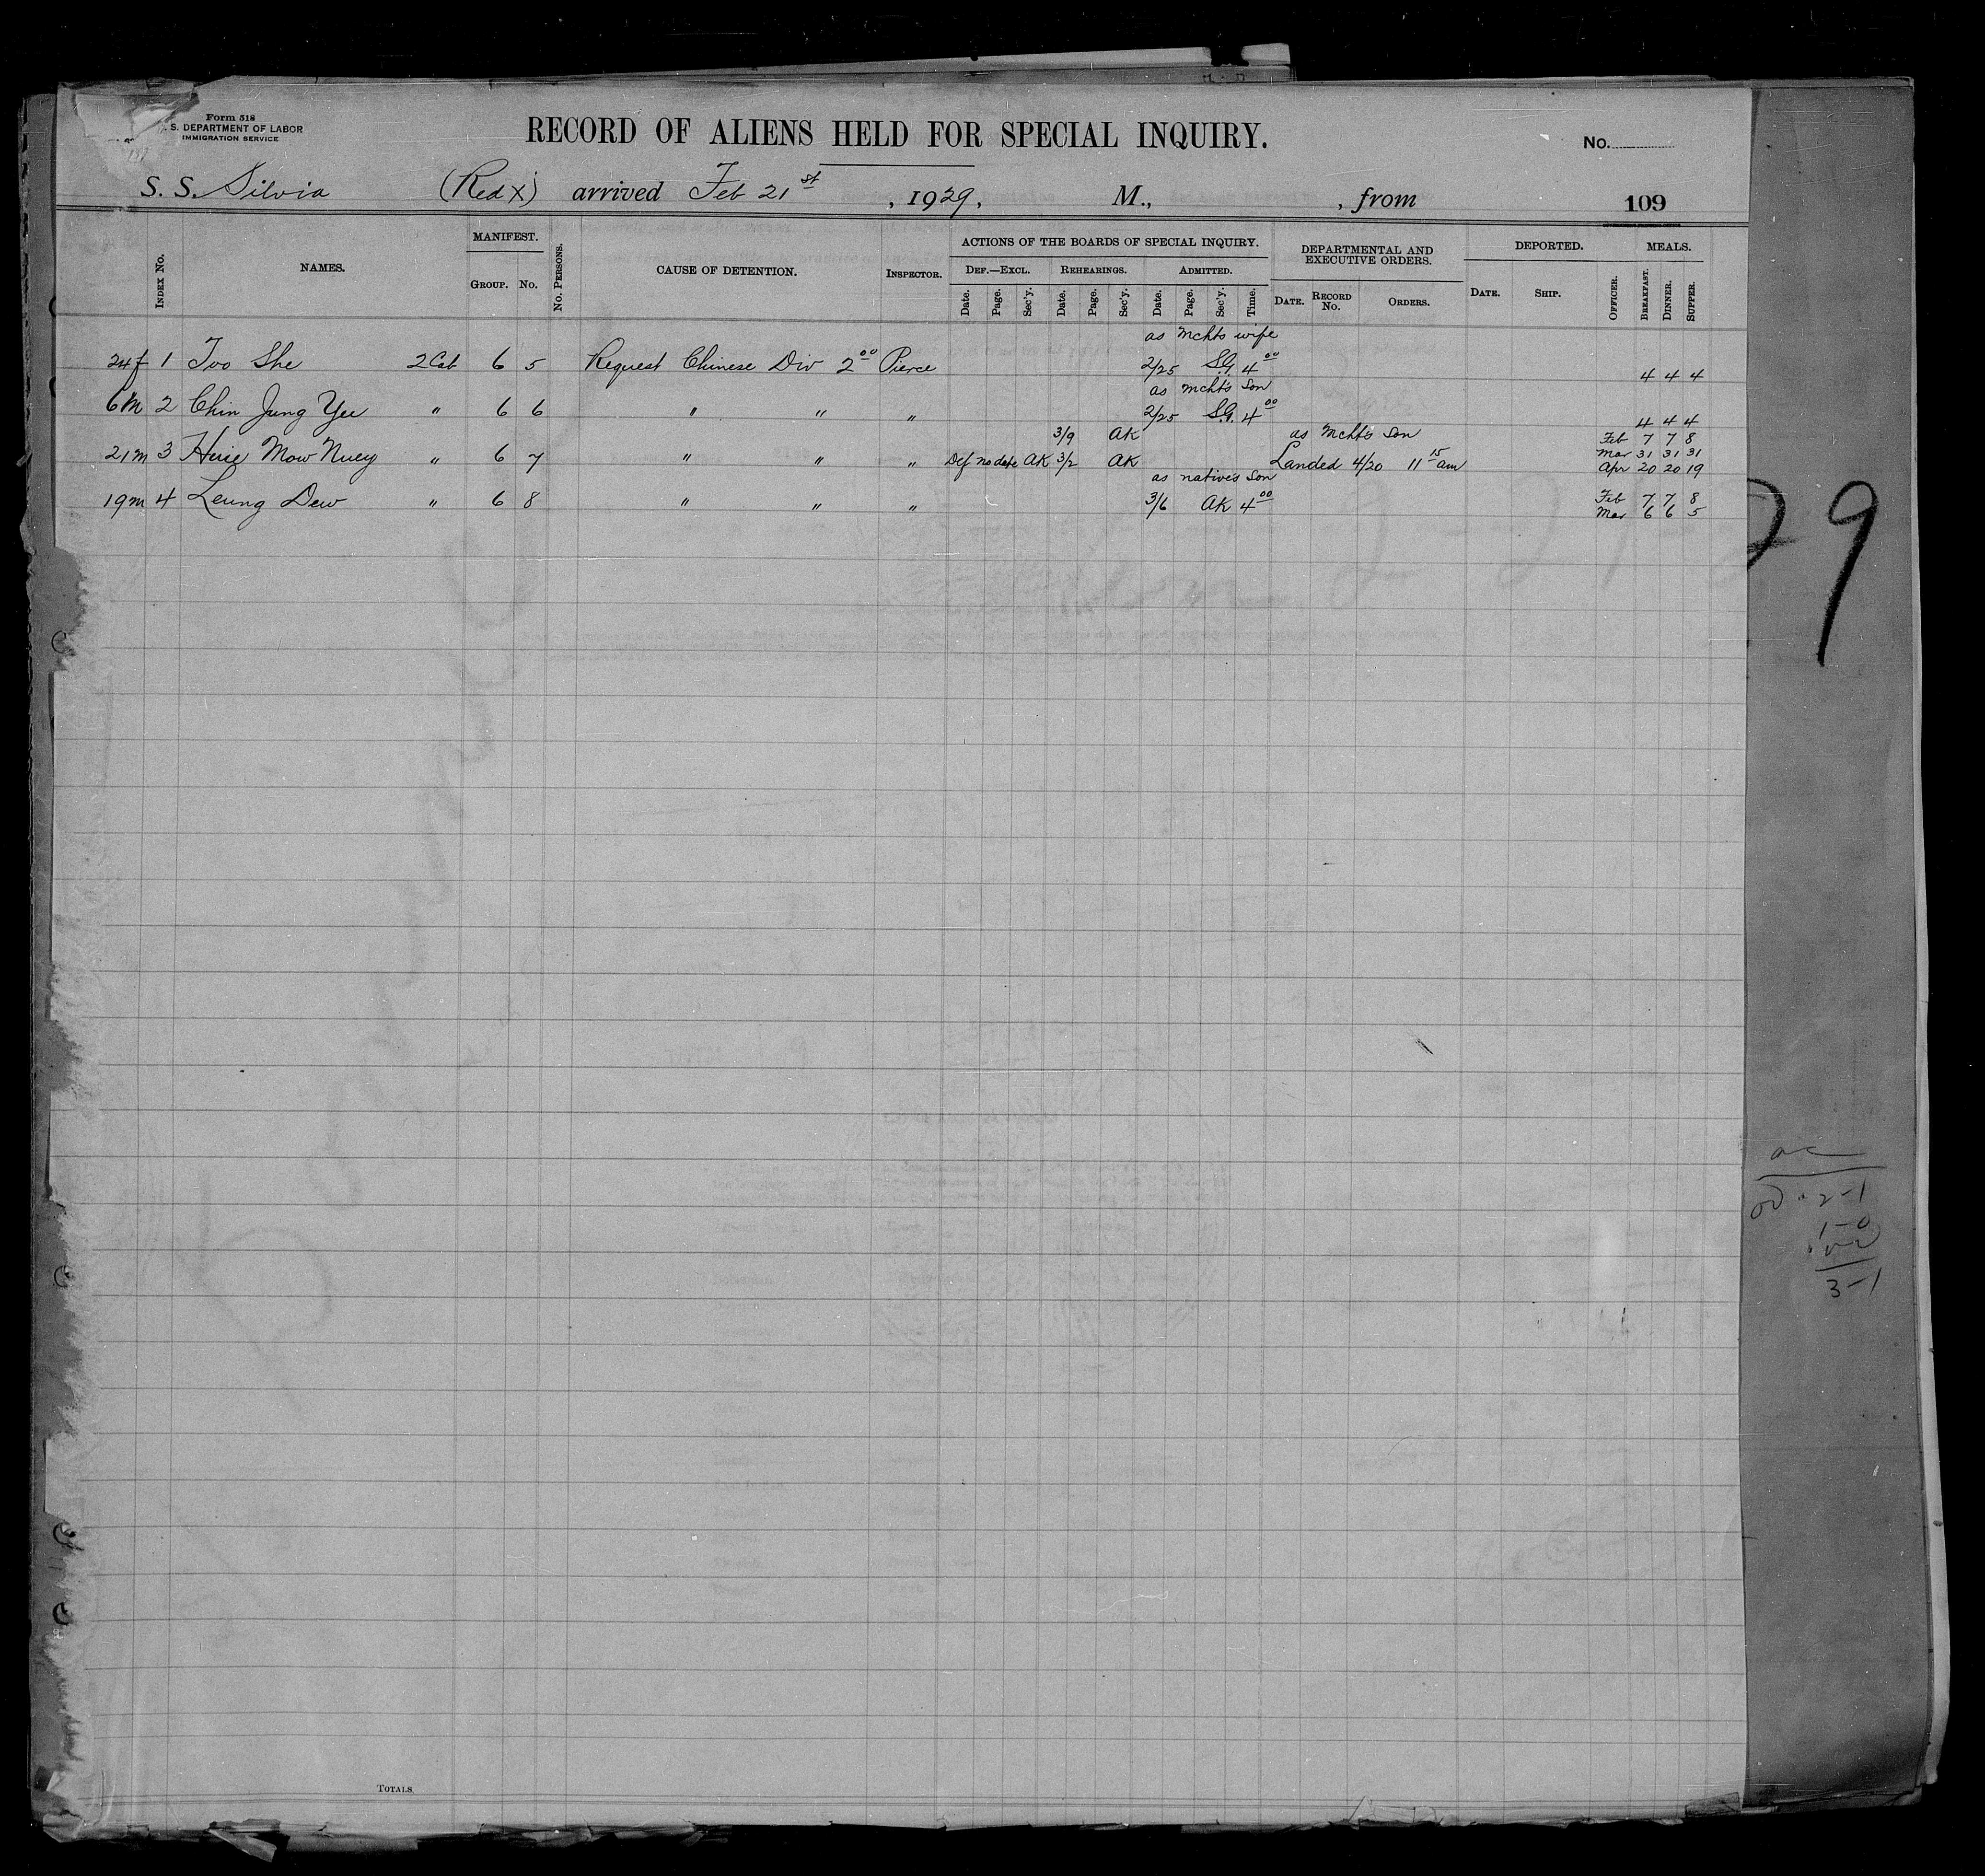 Form 518
S. DEPARTMENT OF LABOR
IMMIGRATION SERVICE
RECORD OF ALIENS HELD FOR SPECIAL INQUIRY.
No.
S. S. Silvia (Red X) arrived Feb 21st, 1929, M., , from 109
INDEX NO. NAMES. MANIFEST. GROUP. NO. NO. PERSONS. CAUSE OF DETENTION. INSPECTOR. ACTIONS OF THE BOARDS OF SPECIAL INQUIRY. DEF.—EXCL. Date. Page. Sec'y. REHEARINGS. Date. Page. Sec'y. ADMITTED. Date. Page. Sec'y. Time. DEPARTMENTAL AND EXECUTIVE ORDERS. DATE. RECORD NO. ORDERS. DEPORTED. DATE. SHIP. OFFICER. MEALS. BREAKFAST. DINNER. SUPPER.
as Mchts wife
24f 1 Too She 2 Cab 6 5 Request Chinese Div 2 00 Pierce 2/25 SG 4 00 4 4 4
as mcht's son
6m 2 Chin Jung Yee " 6 6 " " " 2/25 SG 4 00 4 4 4
3/9 AK as Mcht's Son Feb 7 7 8
Mar 31 31 31
21m 3 Huie Mow Nuey " 6 7 " " " Def no date AK 3/2 AK Landed 4/20 11 15 am Apr 20 20 19
as native's son
19m 4 Leung Dew " 6 8 " " " 3/6 AK 4 00 Feb 7 7 8
Mar 6 6 5
29
2-1
1-0
3-1
TOTALS.